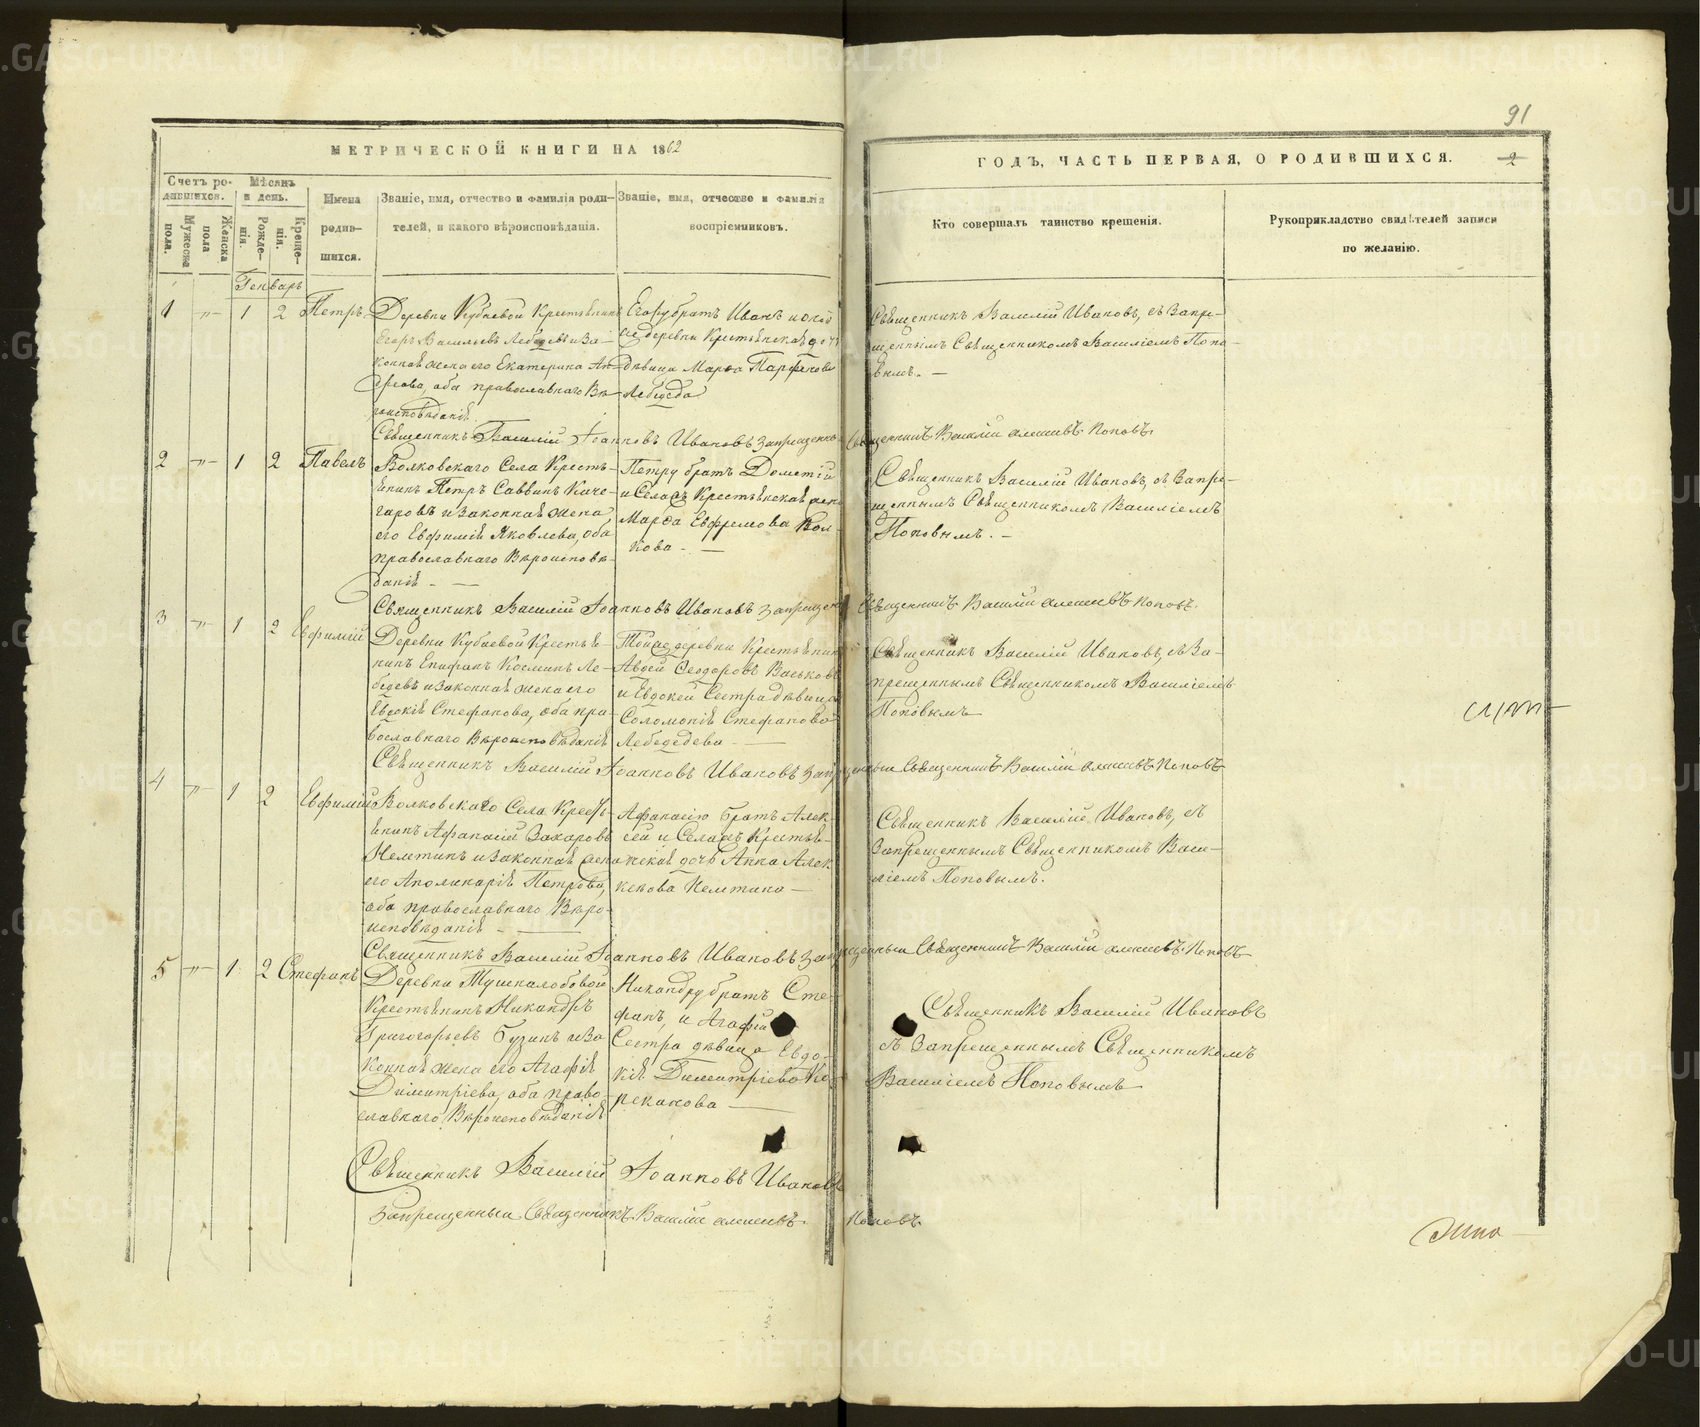 91
МЕТРИЧЕСКОЙ КНИГИ НА 1862
ГОДЪ, ЧАСТЬ ПЕРВАЯ, О РОДИВШИХСЯ.
2
Счетъ ро-
дившихся.
Мужеска пола.
Женска пола
Мѣсяцъ
и день.
Рожде-
нія.
Креще-
нія.
Имена
родив-
шихся.
Званіе, имя, отчество и фамилія роди-
телей, и какого вѣроисповѣданія.
Званіе, имя, отчество и фамилія
воспріемниковъ.
Кто совершалъ таинство крещенія.
Рукоприкладство свидѣтелей записи
по желанію.
Генварь
1 -"- 1 2 Петръ
Деревни Кубаевой Крестьянинъ
Егоръ Васильевъ Лебедевъ и За-
конная жена его Екатерина Ан-
дреева, оба православнаго Вѣ-
роисповѣданія
Егору братъ Иванъ и оной
же деревни Крестьянская дочь
Дѣвица Марѳа Парфенова
Лебедева
Священникъ Василій Ивановъ, съ Запре-
щеннымъ Священникомъ Василіемъ Попо-
вымъ. —
Священникъ Василій Іоанновъ Ивановъ Запрещенный Священникъ Василій алексѣевъ Поповъ
2 -"- 1 2 Павелъ
Волковскаго Села Кресть-
янинъ Петръ Саввинъ Коче-
гаровъ и Законная жена
его Евфимія Яковлева, оба
православнаго Вѣроисповѣ-
данія - —
Петру братъ Дометій
и Села жъ Крестьянская жена
Марѳа Евфремова Вол-
кова - —
Священникъ Василій Ивановъ, съ Запре-
щеннымъ Священникомъ Василіемъ
Поповымъ. -
Священникъ Василій Іоанновъ Ивановъ Запрещенный Священникъ Василій алексѣевъ Поповъ.
3 -"- 1 2 Евфимій
Деревни Кубаевой Крестья-
нинъ Епифанъ Косминъ Ле-
бедевъ и Законная жена его
Евдокія Стефанова, оба пра-
вославнаго Вѣроисповѣданія
Той же деревни Крестьянинъ
Авдей Ѳеодоровъ Васьковъ
и Евдокеи Сестра дѣвица
Соломонія Стефанова
Лебедедева - —
Священникъ Василій Ивановъ, съ За-
прещеннымъ Священникомъ Василіемъ
Поповымъ
Священникъ Василій Іоанновъ Ивановъ Запрещенный Священникъ Василій алексѣевъ Поповъ
4 -"- 1 2 Евфимій
Волковскаго Села Кресть-
янинъ Афанасій Захаровъ
Немтинъ и Законная жена
его Аполинарія Петрова,
оба православнаго Вѣро-
исповѣданія -
Афанасію братъ Алек-
сей и Села жъ Крестья-
нская дочь Анна Алек-
Немтина —
Священникъ Василій Ивановъ, съ
Запрещеннымъ Священникомъ Васи-
ліемъ Поповымъ.
Священникъ Василій Іоанновъ Ивановъ Запрещенный Священникъ Василій алексѣевъ Поповъ
5 -"- 1 2 Стефанъ
Деревни Тушналобовой
Крестьянинъ Никандръ
Григорьевъ Бузинъ и За-
конная жена его Агафія
Димитріева, оба право-
славнаго Вѣроисповѣданія
Никандру братъ Сте-
фанъ, и Агафіи
Сестра дѣвица Евдо-
кія Димитріева
Священникъ Василій Ивановъ
съ Запрещеннымъ Священникомъ
Василіемъ Поповымъ
Священникъ Василій Іоанновъ Ивановъ
Запрещенный Священникъ Василій алексѣевъ Поповъ
METRIKI.GASO-URAL.RU